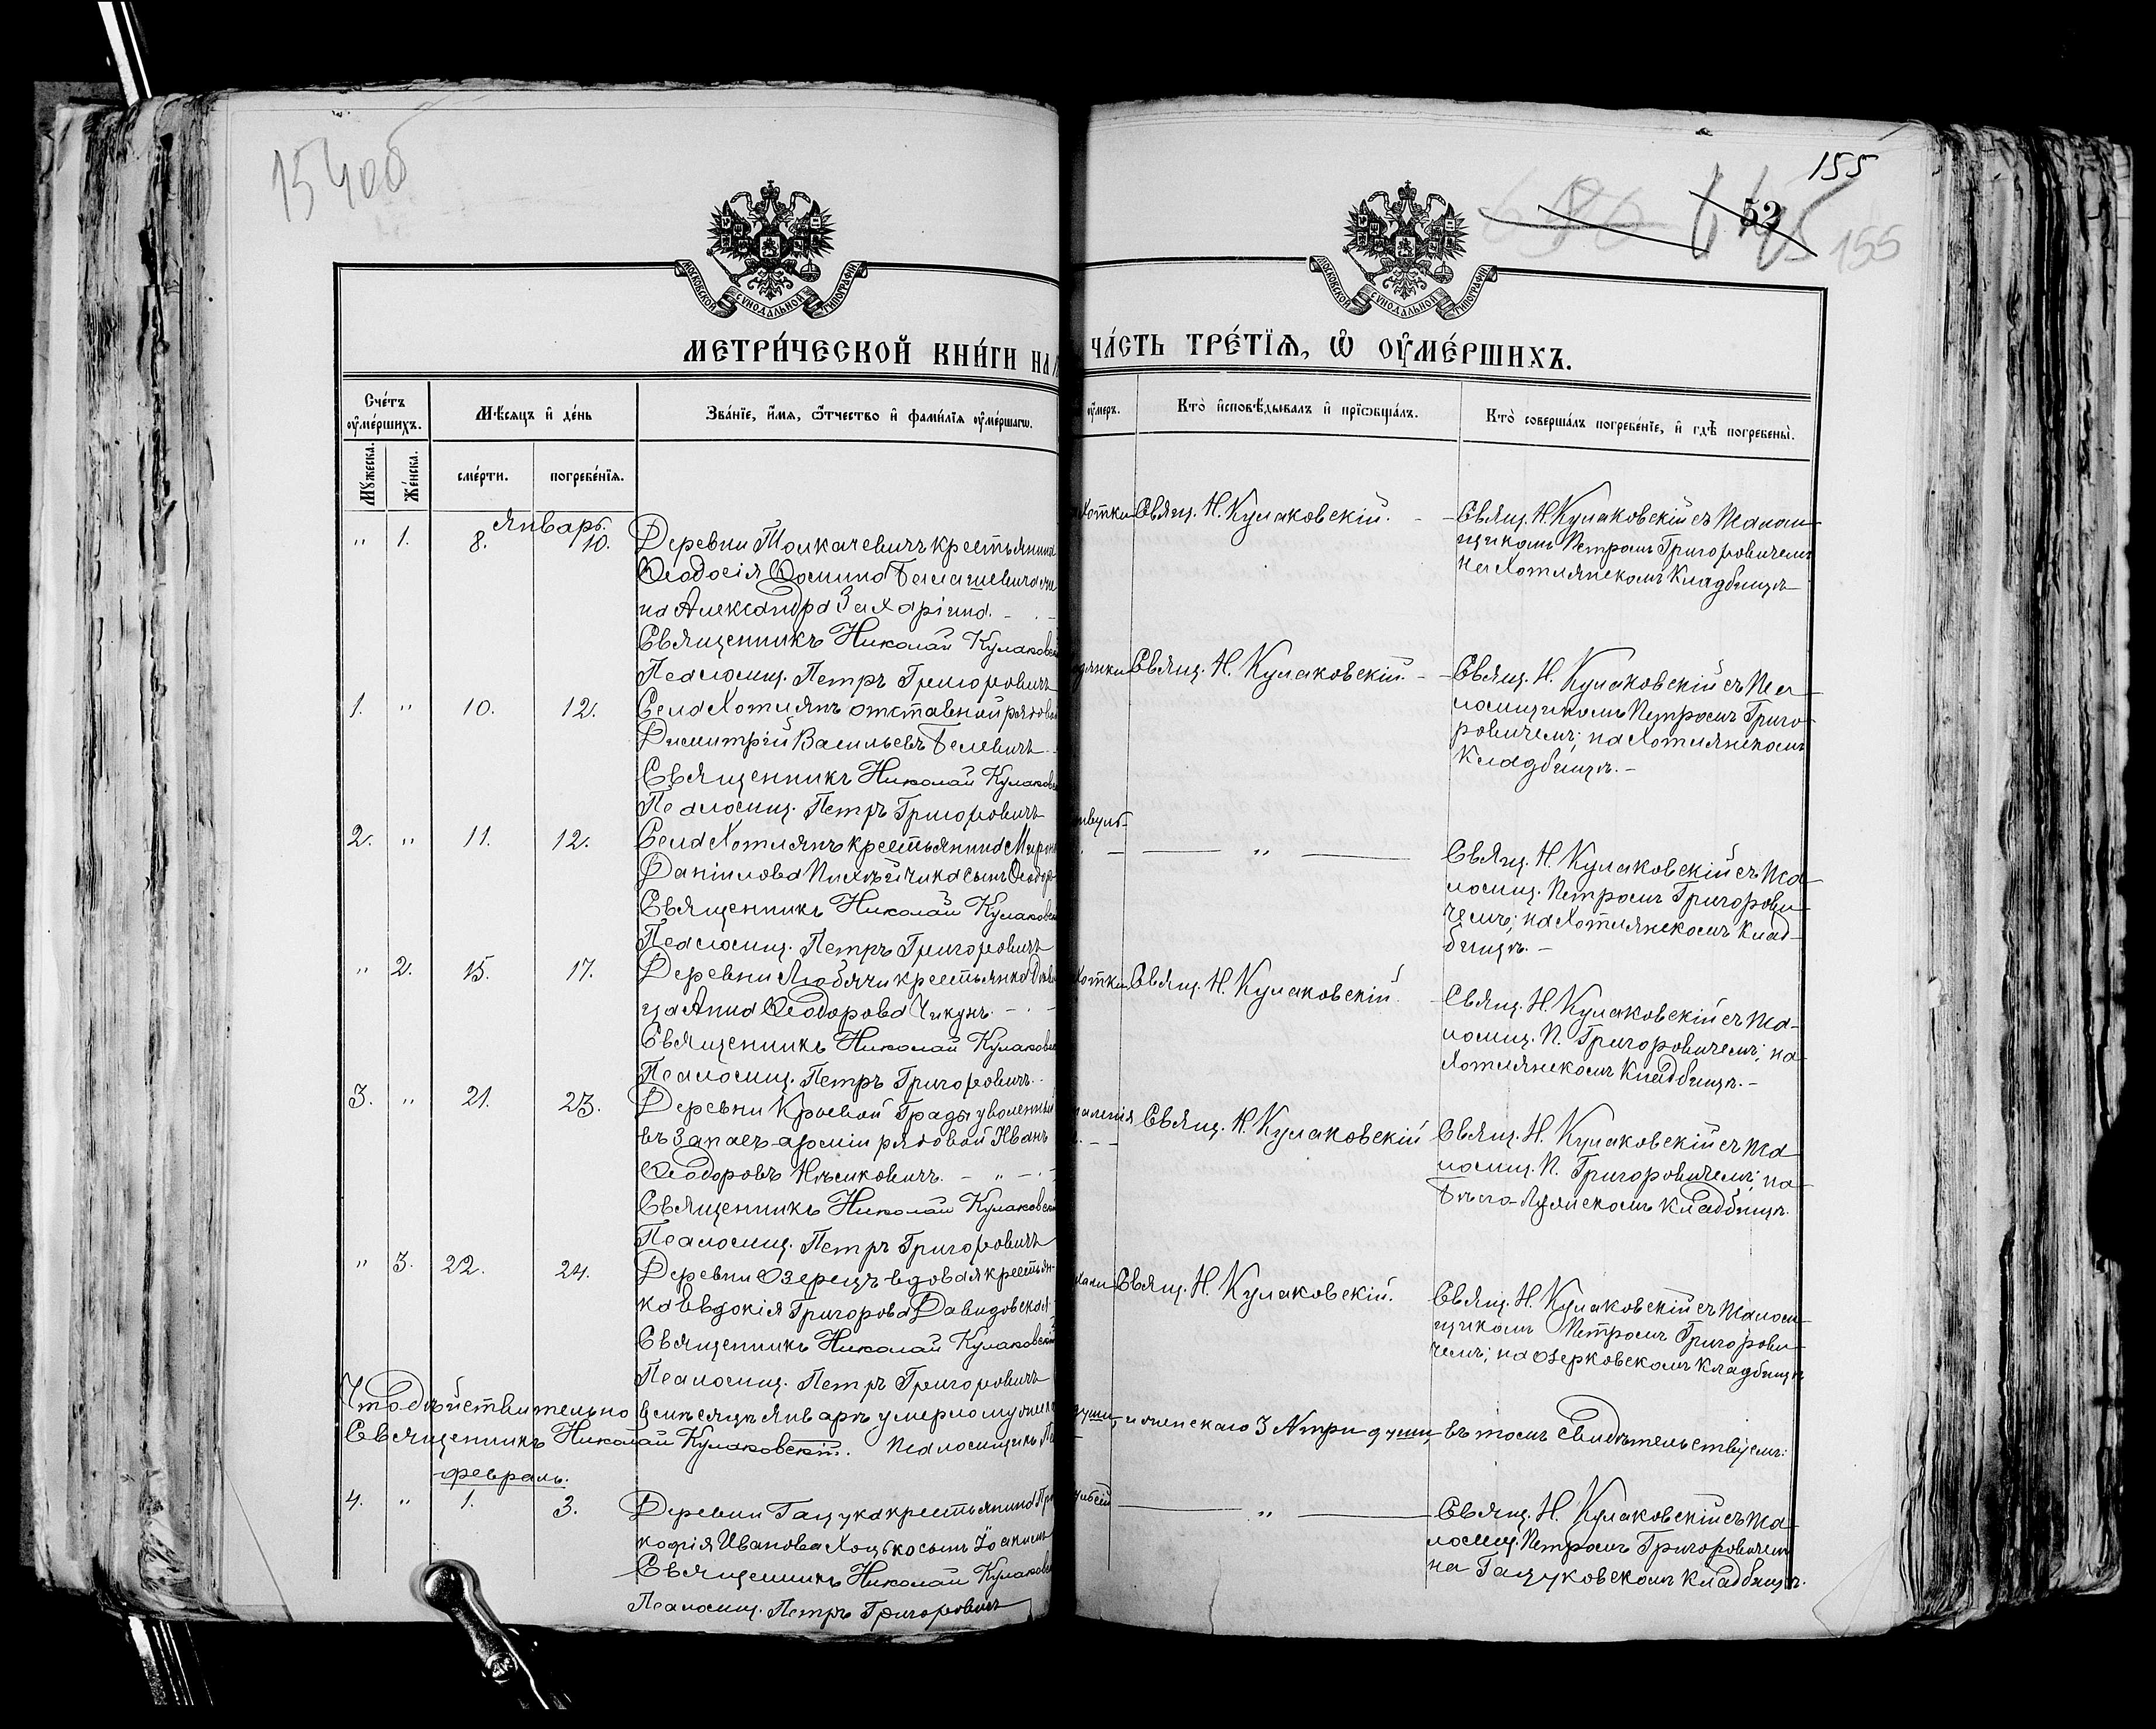 154об
155
52
155
МОСКОВСКОЙ СУНОДАЛЬНОЙ ТИПОГРАФІИ
МОСКОВСКОЙ СУНОДАЛЬНОЙ ТИПОГРАФІИ
МЕТРИ́ЧЕСКОЙ КНИ́ГИ НА
ЧА́СТЬ ТРЕ́ТІѦ, Ѡ҆ ОУ҆МЕ́РШИХЪ.
Сче́тъ оу҆ме́ршихъ.
Мꙋжеска.
Же́нска.
Мѣ́сѧцъ и҆ де́нь
сме́рти.
погребе́нїѧ.
Зва́нїе, и҆́мѧ, ѻ҆́тчество и҆ фами́лїѧ оу҆ме́ршагѡ.
оу҆меръ.
Кто̀ и҆сповѣ́дывалъ и҆ прїѡбща́лъ.
Кто̀ соверша́лъ погребе́нїе, и҆ гдѣ̀ погребены̀.
Январь.
" 1. 8. 10. Деревни Толкачевичъ крестьянина
Ѳеодосія Ѳомина
на Александра Захаріина.
Священникъ Николай Куlаковскій
Псаломщ. Петръ Григоровичъ
Свящ. Н. Кулаковскій.
Свящ. Н. Кулаковскій съ Псалом-
щикомъ Петромъ Григоровичемъ
на Хотлянскомъ Кладбищѣ
1. " 10. 12. Села Хотлянъ отставной рядовой
Димитрій Васильевъ Белевичъ
Священникъ Николай Кулаковскій
Псаломщ. Петръ Григоровичъ
Свящ. Н. Кулаковскій.
Свящ. Н. Кулаковскій съ Пса-
ломщикомъ Петромъ Григо-
ровичемъ; на Хотлянскомъ
Кладбищѣ.
2. " 11. 12. Села Хотлянъ крестьянина Мирона
Даніилова сынъ Ѳеодоръ
Священникъ Николай Кулаковскій
Псаломщ. Петръ Григоровичъ
"
Свящ. Н. Кулаковскій съ Пса-
ломщ. Петромъ Григорови-
чемъ; на Хотлянскомъ Клад-
бищѣ.
" 2. 15. 17. Деревни Любячи крестьянка
ца Анна Ѳеодорова Чикунъ.
Священникъ Николай Кулаковскій
Псаломщ. Петръ Григоровичъ.
Свящ. Н. Кулаковскій
Свящ. Н. Кулаковскій съ Пса-
ломщ. П. Григоровичемъ; на
Хотлянскомъ Кладбищѣ.
3. " 21. 23. Деревни Краевой Грады уволенный
въ запасъ арміи рядовой Иванъ
Ѳеодоровъ
Священникъ Николай Кулаковскій
Псаломщ. Петръ Григоровичъ
Свящ. Н. Кулаковскій
Свящ. Н. Кулаковскій съ Пса
ломщ. П. Григоровичемъ; на
Кладбищѣ.
" 3. 22. 24. Деревни Озерецъ вдовая крестьян-
ка Евдокія Григорова Давидовская.
Священникъ Николай Кулаковскій
Псаломщ. Петръ Григоровичъ
Свящ. Н. Кулаковскій.
Свящ. Н. Кулаковскій съ Псалом-
щикомъ Петромъ Григорови-
чемъ; на Озерковскомъ Кладбищѣ
Что дѣйствительно въ мѣсяцѣ Январѣ умерло мужеска
души, и женскаго 3 три души, въ томъ свидѣтельствуемъ:
Священникъ Николай Кулаковскій. Псаломщикъ
февраль.
4. " 1. 3. Деревни Гацука крестьянина Про
кофія Иванова Хоцько сынъ Іоакимъ
Священникъ Николай Кулаковскій
Псаломщ. Петръ Григоровичъ
"
Свящ. Н. Кулаковскій съ Пса-
ломщ. Петромъ Григоровичемъ
на Гацуковскомъ Кладбищѣ.